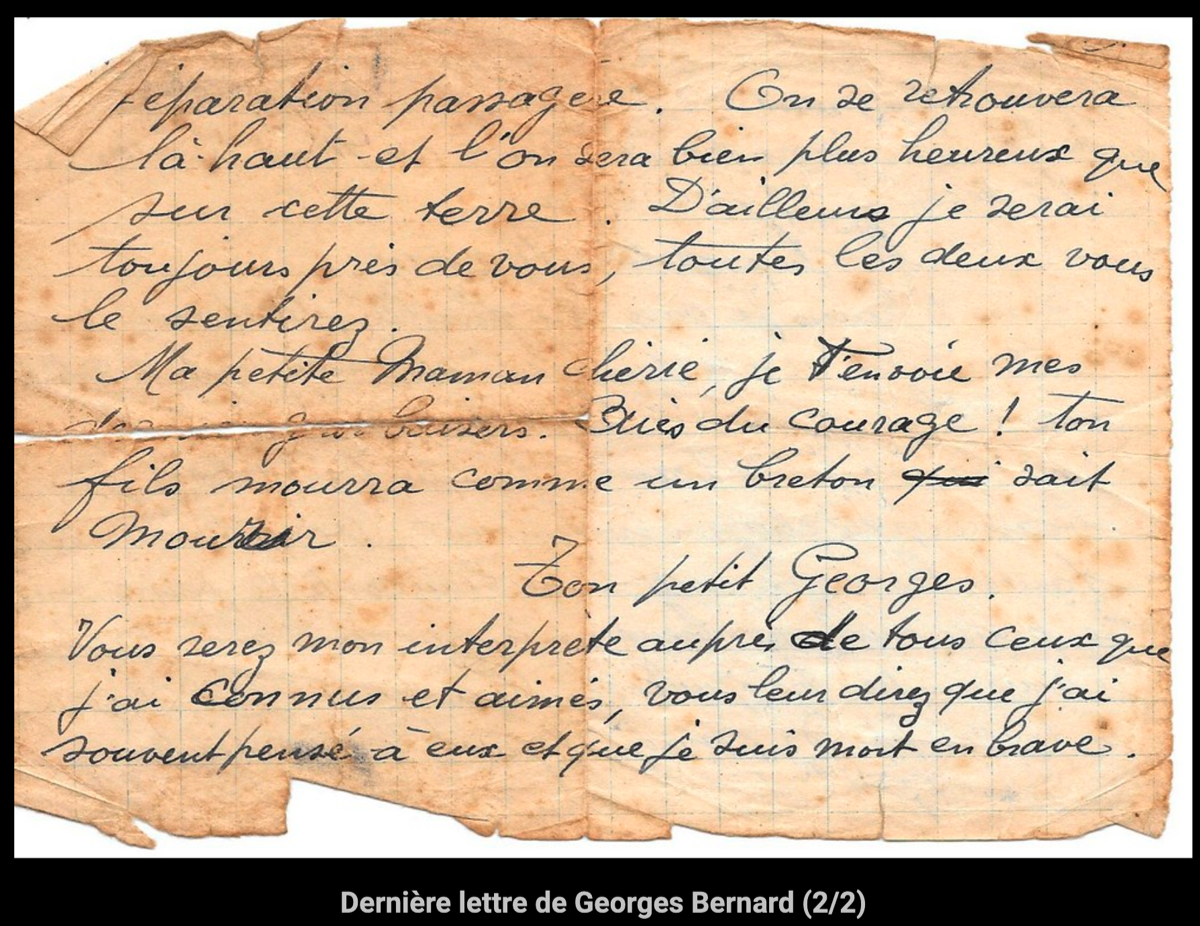 séparation passagère. On se retrouvera
là-haut et l'on sera bien plus heureux que
sur cette terre. D'ailleurs je serai
toujours près de vous, toutes les deux vous
le sentirez.
Ma petite Maman chérie, je t'envoie mes
gros baisers. du courage ! ton
fils mourra comme un breton qui sait
mourir.
Ton petit Georges.
Vous serez mon interprète auprès de tous ceux que
j'ai connus et aimés, vous leur direz que j'ai
souvent pensé à eux et que je suis mort en brave.
Dernière lettre de Georges Bernard (2/2)